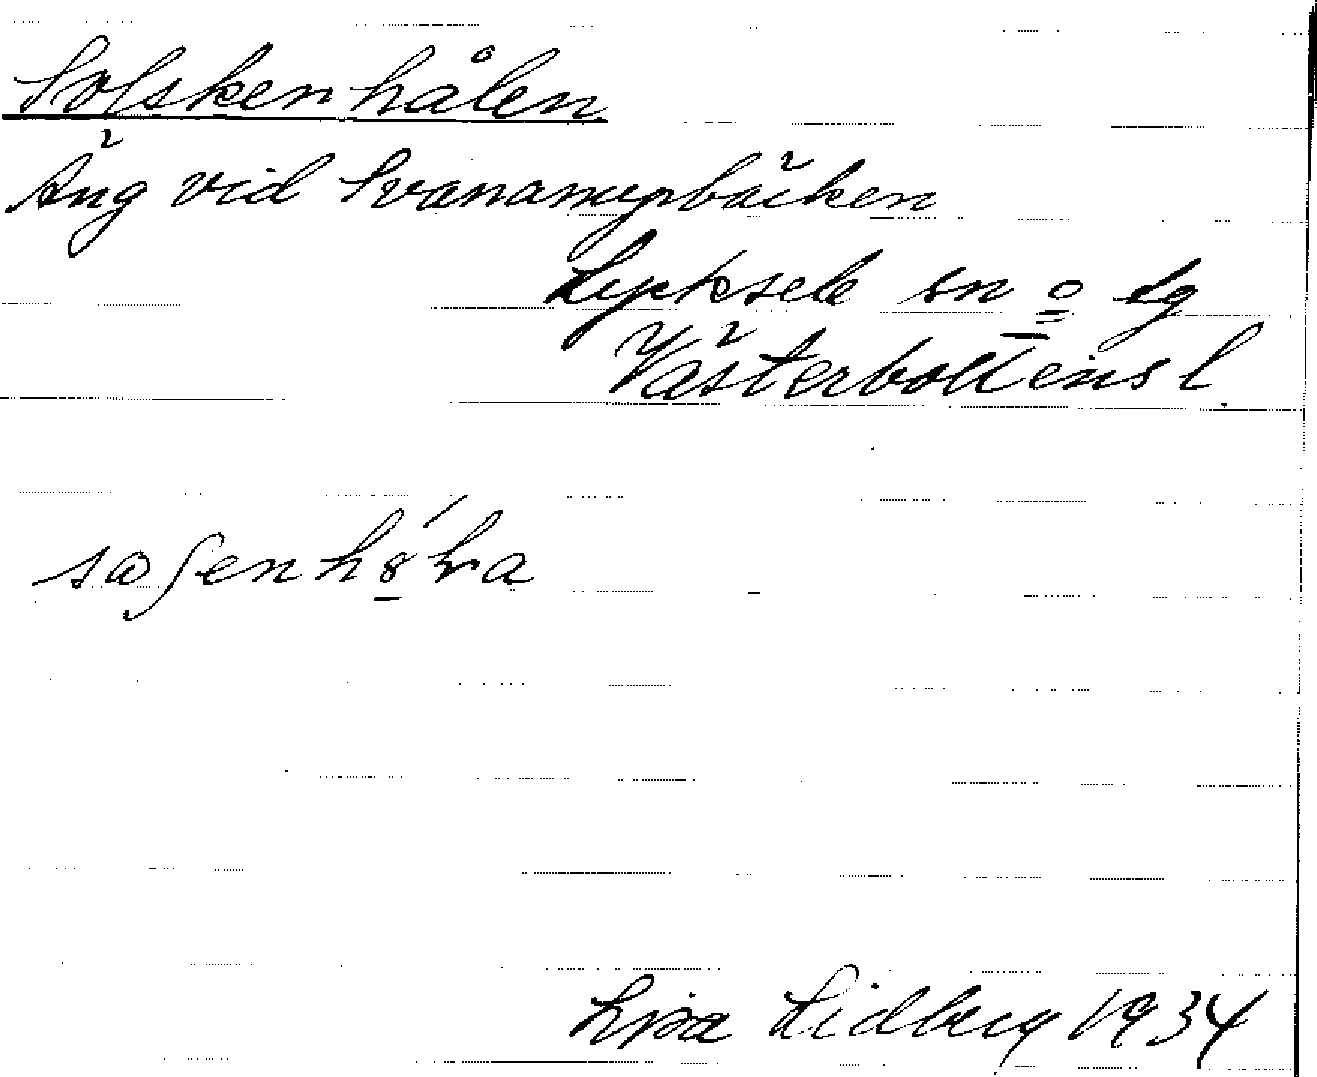 Solskenhålen
Äng vid Svanamyrbäcken
Lycksele sn o lg
Västerbottens l.
Lisa Lidberg 1934